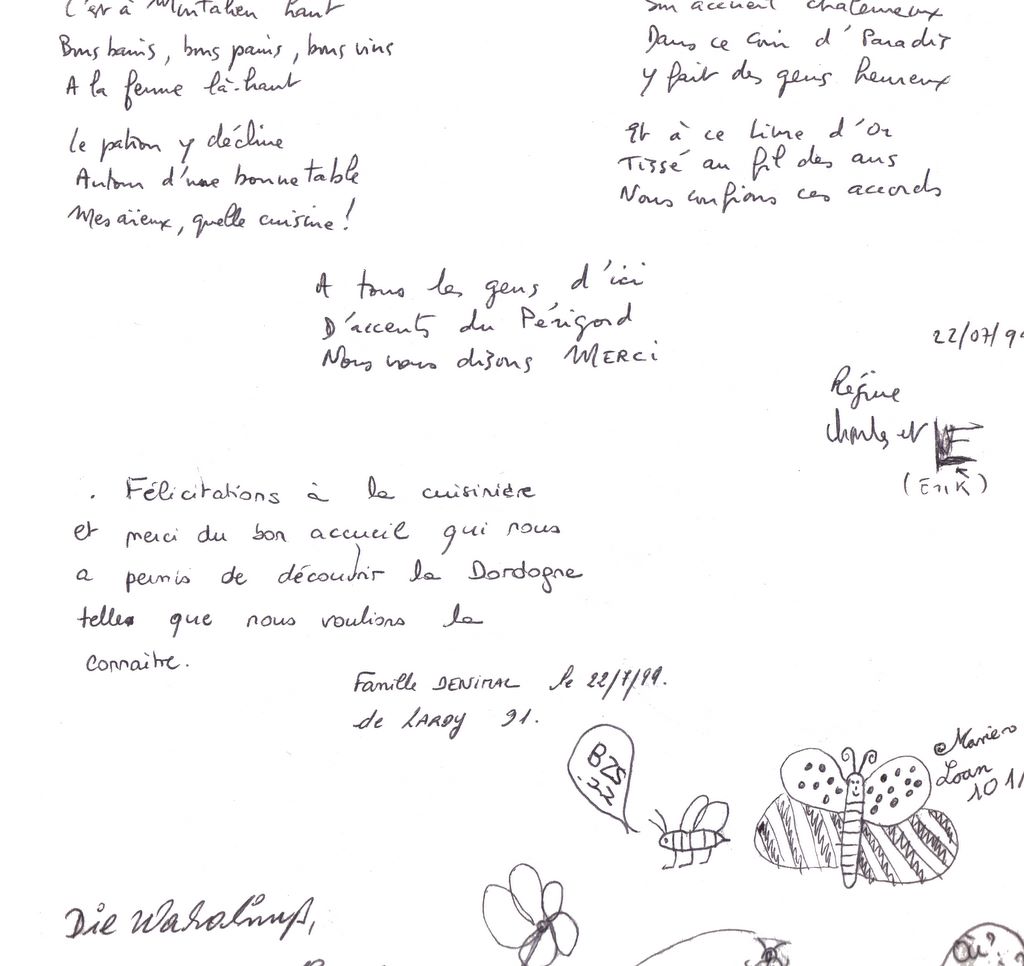 C'est à Montalien haut
Bons bains, bons pains, bons vins
A la ferme là-haut
Le patron y décline
Autour d'une bonne table
Mes aïeux, quelle cuisine !
Son accueil chaleureux
Dans ce coin d'Paradis
Y fait des gens heureux
Et à ce Livre d'Or
Tissé au fil des ans
Nous confions ces accords
A tous les gens d'ici
D'accents du Périgord
Nous vous disons MERCi
22/07/9
Régine
Charles et E
(Erik)
. Félicitations à la cuisinière
et merci du bon accueil qui nous
a permis de découvrir la Dordogne
telle que nous voulions la
connaitre.
Famille DENIMAL le 22/7/99.
de LARDY 91.
BZS
Marie
Loan
10 1/
Die
où?